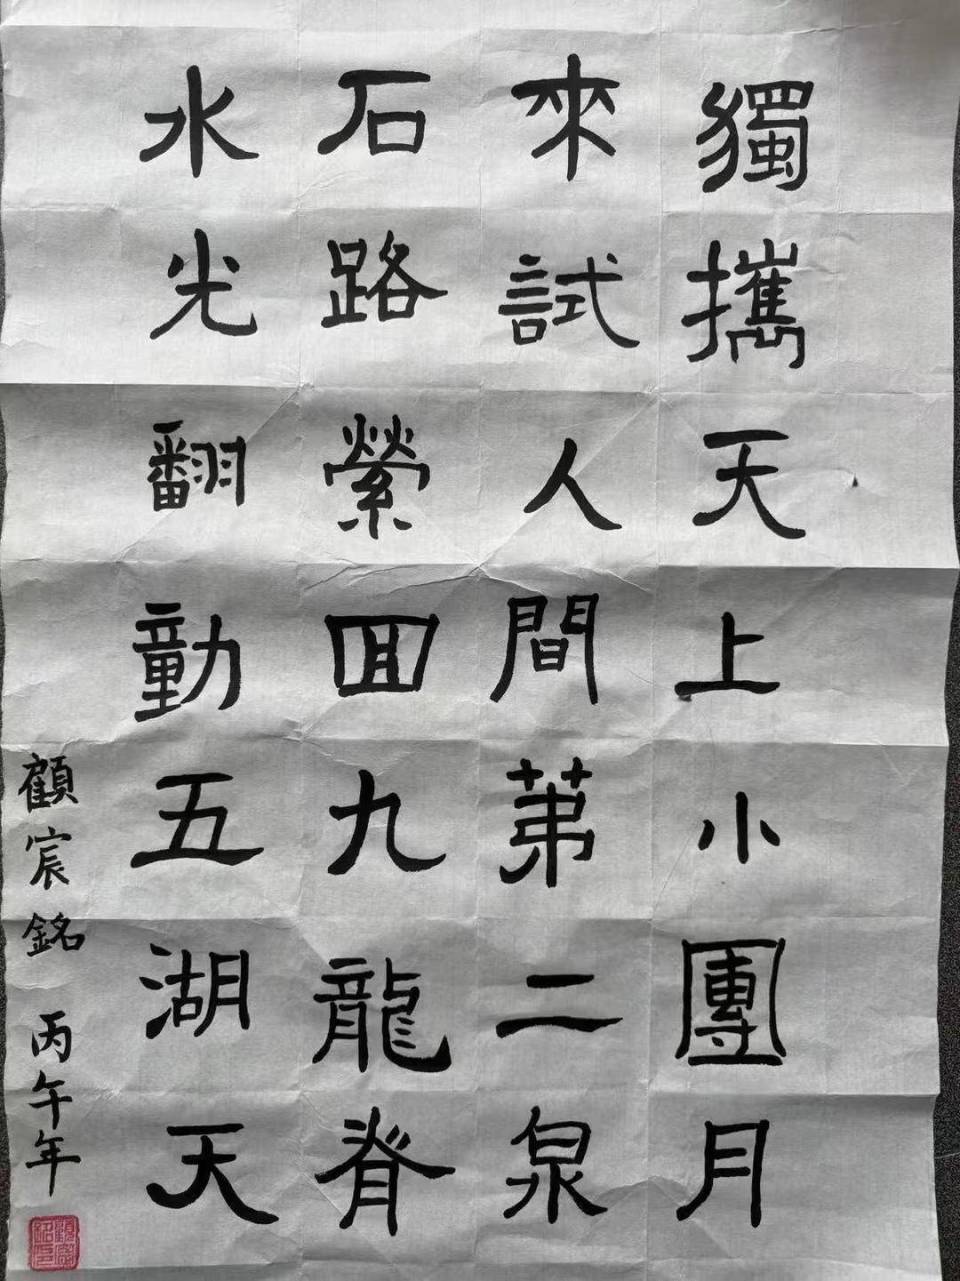 獨攜天上小團月
來試人間苐二泉
石路縈回九龍脊
水光翻動五湖天
顧宸銘 丙午年